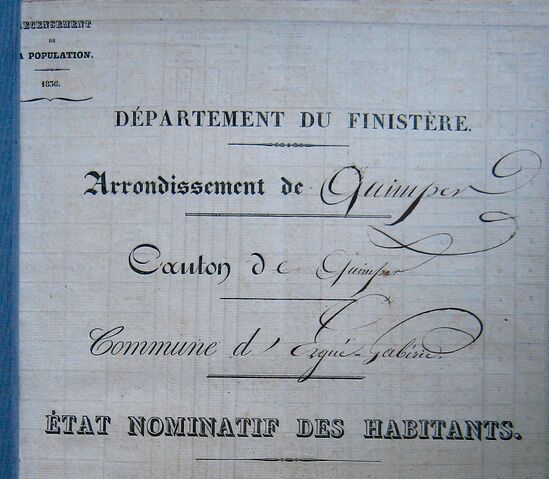 RECENSEMENT
DE
LA POPULATION.
1836.
DÉPARTEMENT DU FINISTÈRE.
Arrondissement de Quimper
Canton de Quimper
Commune d'Ergué-Gabéric.
ÉTAT NOMINATIF DES HABITANTS.